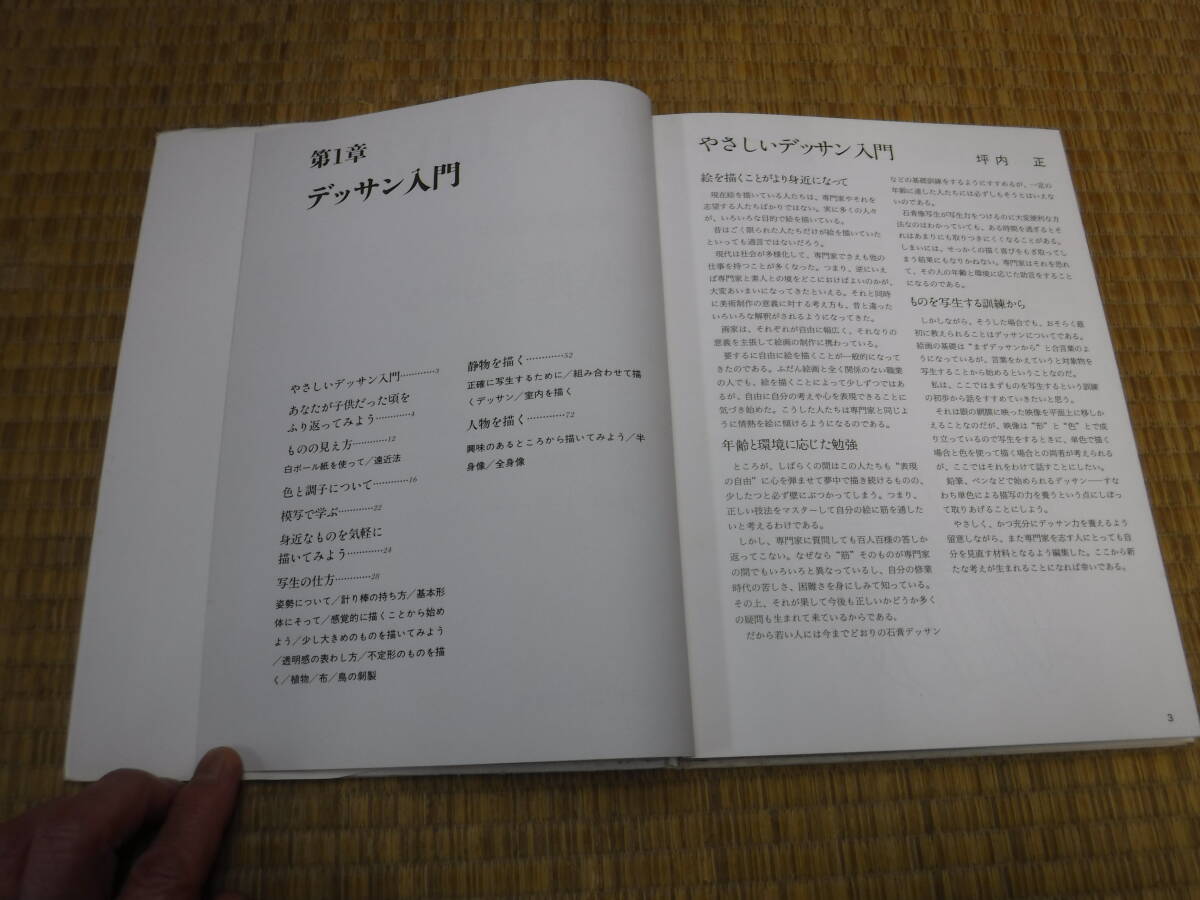 第1章
デッサン入門
やさしいデッサン入門…………3
あなたが子供だった頃を
ふり返ってみよう…………4
ものの見え方…………12
白ボール紙を使って／遠近法
色と調子について…………16
模写で学ぶ…………22
身近なものを気軽に
描いてみよう…………24
写生の仕方…………28
姿勢について／計り棒の持ち方／基本形
体にそって／感覚的に描くことから始め
よう／少し大きめのものを描いてみよう
／透明感の表わし方／不定形のものを描
く／植物／布／鳥の剥製
静物を描く…………52
正確に写生するために／組み合わせて描
くデッサン／室内を描く
人物を描く…………72
興味のあるところから描いてみよう／半
身像／全身像
やさしいデッサン入門
坪内　正
絵を描くことがより身近になって
現在絵を描いている人たちは、専門家やそれを
志望する人たちばかりではない。実に多くの人々
が、いろいろな目的で絵を描いている。
昔はごく限られた人たちだけが絵を描いていた
といっても過言ではないだろう。
現代は社会が多様化して、専門家でさえも他の
仕事を持つことが多くなった。つまり、逆にいえ
ば専門家と素人との境をどこにおけばよいのかが、
大変あいまいになってきたといえる。それと同時
に美術制作の意義に対する考え方も、昔と違った
いろいろな解釈がされるようになってきた。
画家は、それぞれが自由に幅広く、それなりの
意義を主張して絵画の制作に携わっている。
要するに自由に絵を描くことが一般的になって
きたのである。ふだん絵画と全く関係のない職業
の人でも、絵を描くことによって少しずつではあ
るが、自由に自分の考えや心を表現できることに
気づき始めた。こうした人たちは専門家と同じよ
うに情熱を絵に傾けるようになるのである。
年齢と環境に応じた勉強
ところが、しばらくの間はこの人たちも“表現
の自由”に心を弾ませて夢中で描き続けるものの、
少したつと必ず壁にぶつかってしまう。つまり、
正しい技法をマスターして自分の絵に筋を通した
いと考えるわけである。
しかし、専門家に質問しても百人百様の答しか
返ってこない。なぜなら“筋”そのものが専門家
の間でもいろいろと異なっているし、自分の修業
時代の苦しさ、困難さを身にしみて知っている。
その上、それが果して今後も正しいかどうか多く
の疑問も生まれて来ているからである。
だから若い人には今までどおりの石膏デッサン
などの基礎訓練をするようにすすめるが、一定の
年齢に達した人たちには必ずしもそうとはいえな
いのである。
石膏像写生が写生力をつけるのに大変便利な方
法なのはわかっていても、ある時期を過ぎるとそ
れはあまりにも取りつきにくくなることがある。
しまいには、せっかくの描く喜びをもぎ取ってし
まう結果にもなりかねない。専門家はそれを恐れ
て、その人の年齢と環境に応じた助言をすること
になるのである。
ものを写生する訓練から
しかしながら、そうした場合でも、おそらく最
初に教えられることはデッサンについてである。
絵画の基礎は“まずデッサンから”と合言葉のよ
うになっているが、言葉をかえていうと対象物を
写生することから始めるということなのだ。
私は、ここではまずものを写生するという訓練
の初歩から話をすすめていきたいと思う。
それは眼の網膜に映った映像を平面上に移しか
えることなのだが、映像は“形”と“色”とで成
り立っているので写生をするときに、単色で描く
場合と色を使って描く場合との両者が考えられる
が、ここではそれをわけて話すことにしたい。
鉛筆、ペンなどで始められるデッサン――すな
わち単色による描写の力を養うという点にしぼっ
て取りあげることにしよう。
やさしく、かつ充分にデッサン力を養えるよう
留意しながら、また専門家を志す人にとっても自
分を見直す材料となるよう編集した。ここから新
たな考えが生まれることになれば幸いである。
3